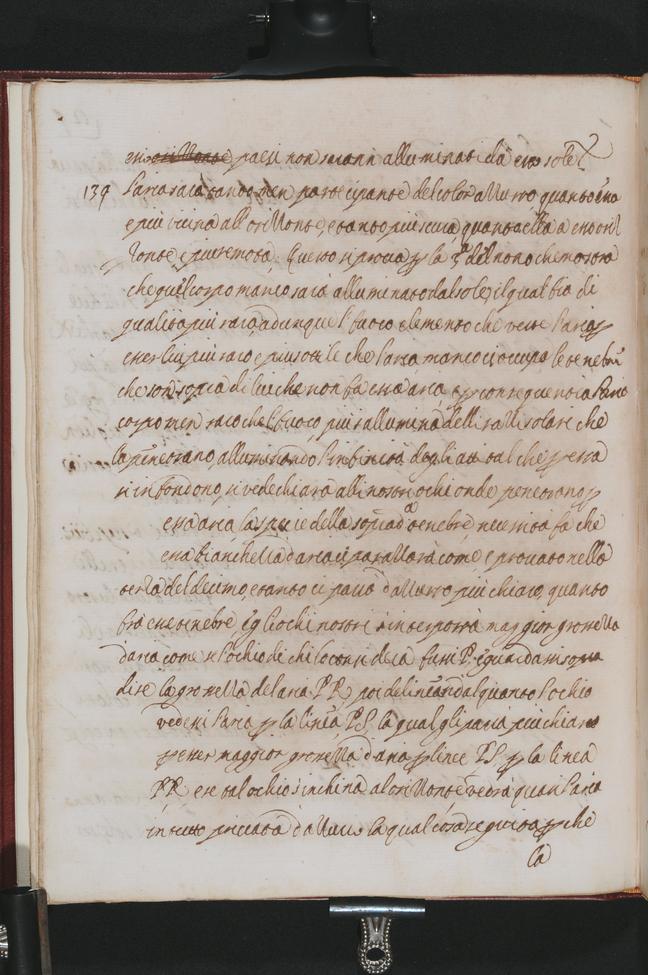 essi orizonte paesi non saranno alluminati da esso sole
139 l'aria sarà tanto men partecipante del color azzurro quanto essa
e più vicina all'orizonte, e tanto più scura quanto ella a esso ori
zonte è più remota, Questo si prova p la 3ª del nono che mostra
che quel corpo manco sarà alluminato dal sole, il qual fia di
qualità più raro, adunque l fuoco elemento che veste l'aria p
esser lui più raro e più sottile che l'aria manco ci occupa le tenebre
che son sopra di lui che non fa essa aria, e p conseguentia l'aria
corpo men raro che l fuoco più s'allumina delli razzi solari che
la penetrano, alluminando l'infinità degli attomi che p essa
s'infondono, si vede chiara alli nostri ochi onde penetrando p
essa aria la spetie della sopradª tenebre, necessità fà che
essa bianchezza d'aria ci para azzurra come è provato nella
terza del decimo, e tanto ci parrà d'azzurro più chiaro, quanto
frà esse tenebre è gli ochi nostri s'interporrà maggior grossezza
d'aria come se l'ochio di chi lo considera fussi P. è guardassi sopra
di se la grossezza del'aria P R poi declinando alquanto l'ochio
vedessi l'aria p la linea P S. la qual gli parrà più chiara
p esser maggior grossezza d'aria p linea P S. p la linea
P R e se tal ochio s'inchina al'orizonte vedrà quasi l'aria
in tutto privata d'azzurro la qual cosa seguita p che
la